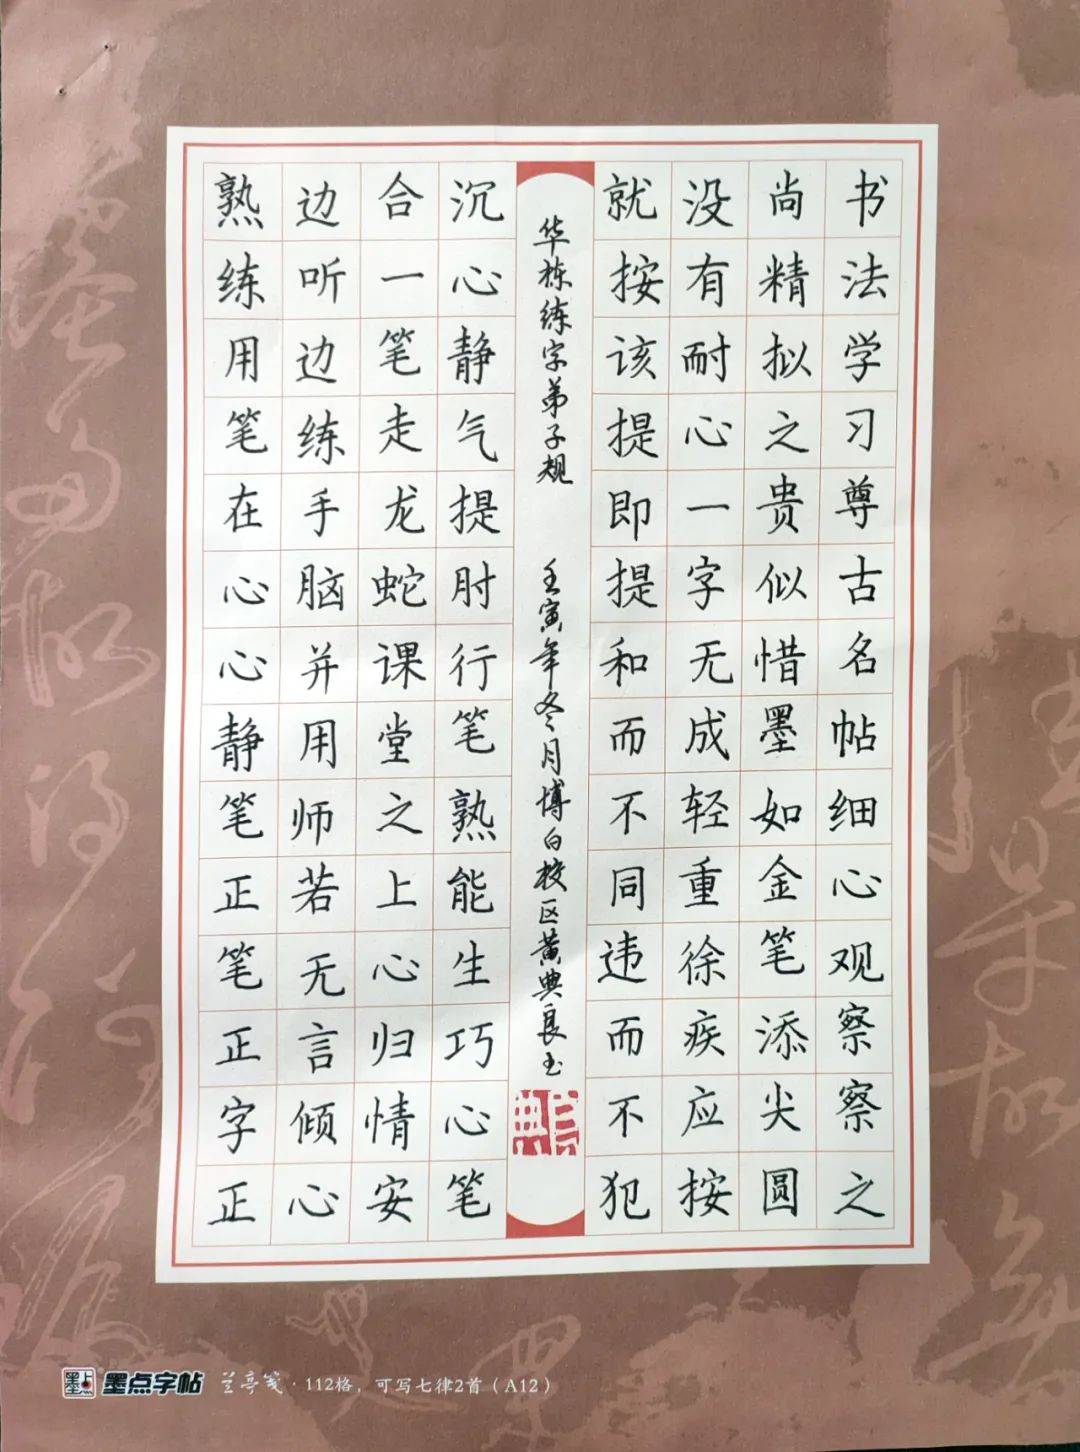 书法学习尊古名帖细心观察察之
尚精拟之贵似惜墨如金笔添尖圆
没有耐心一字无成轻重徐疾应按
就按该提即提和而不同违而不犯
华栋练字弟子规 壬寅年冬月博白校区黄典良书
沉心静气提肘行笔熟能生巧心笔
合一笔走龙蛇课堂之上心归情安
边听边练手脑并用师若无言倾心
熟练用笔在心心静笔正笔正字正
墨点字帖 兰亭笺·112格，可写七律2首（A12）